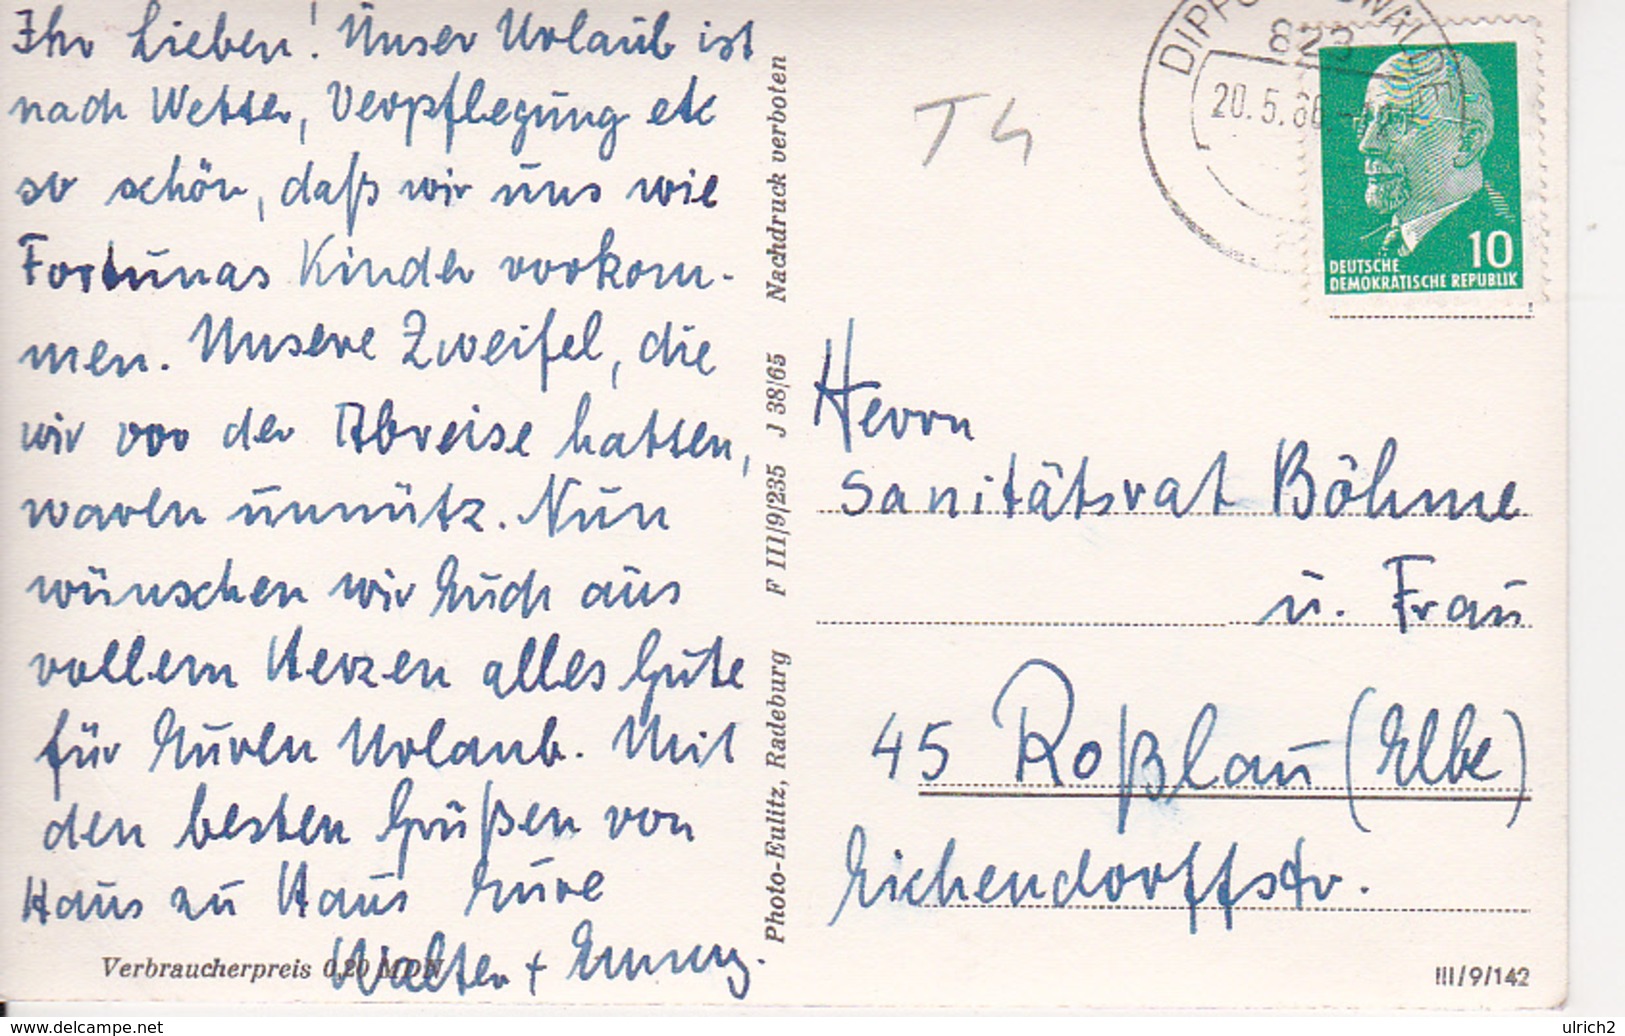 Ihr Lieben! Unser Urlaub ist
nach Wetter, Verpflegung etc
so schön, daß wir uns wie
Fortunas Kinder vorkom-
men. Unsere Zweifel, die
wir vor der Abreise hatten,
waren unnütz. Nun
wünschen wir Euch aus
vollem Herzen alles Gute
für Euren Urlaub. Mit
den besten Grüßen von
Haus zu Haus Eure
Walter +
Verbraucherpreis 0,20 MDN
Photo-Eulitz, Radeburg F III/9/235 J 38/65 Nachdruck verboten
T4
823
20.5.66
10
DEUTSCHE
DEMOKRATISCHE REPUBLIK
Herrn
Sanitätsrat Böhme
u. Frau
45 Roßlau (Elbe)
Eichendorffstr.
III/9/142
delcampe.net
ulrich2